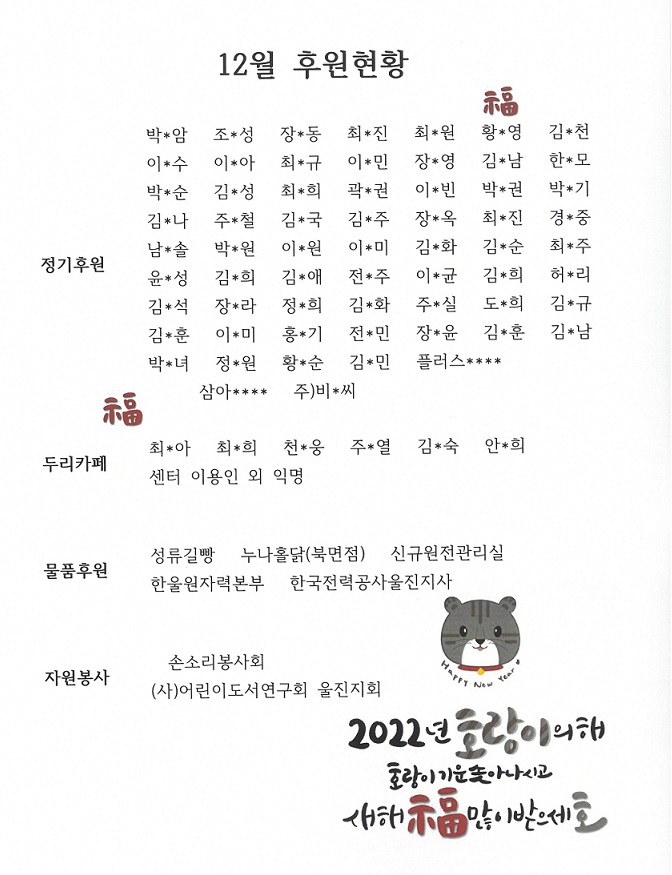 12월 후원현황
福
박*암 조*성 장*동 최*진 최*원 황*영 김*천
이*수 이*아 최*규 이*민 장*영 김*남 한*모
박*순 김*성 최*희 곽*권 이*빈 박*권 박*기
김*나 주*철 김*국 김*주 장*옥 최*진 경*중
남*솔 박*원 이*원 이*미 김*화 김*순 최*주
정기후원
윤*성 김*희 김*애 전*주 이*균 김*희 허*리
김*석 장*라 정*희 김*화 주*실 도*희 김*규
김*훈 이*미 홍*기 전*민 장*윤 김*훈 김*남
박*녀 정*원 황*순 김*민 플러스****
삼아**** 주)비*씨
福
두리카페
최*아 최*희 천*웅 주*열 김*숙 안*희
센터 이용인 외 익명
물품후원
성류길빵 누나홀닭(북면점) 신규원전관리실
한울원자력본부 한국전력공사울진지사
자원봉사
손소리봉사회
(사)어린이도서연구회 울진지회
Happy New Year
2022년 호랑이의해
호랑이기운솟아나시고
새해福많이받으세호